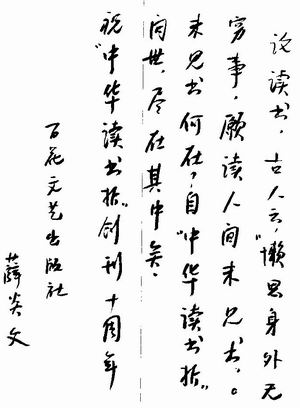 说读书，古人云，“懒思身外无
穷事，愿读人间未见书”。
未见书何在，自“中华读书报”
问世，尽在其中矣。
祝“中华读书报”创刊十周年
百花文艺出版社
薛炎文